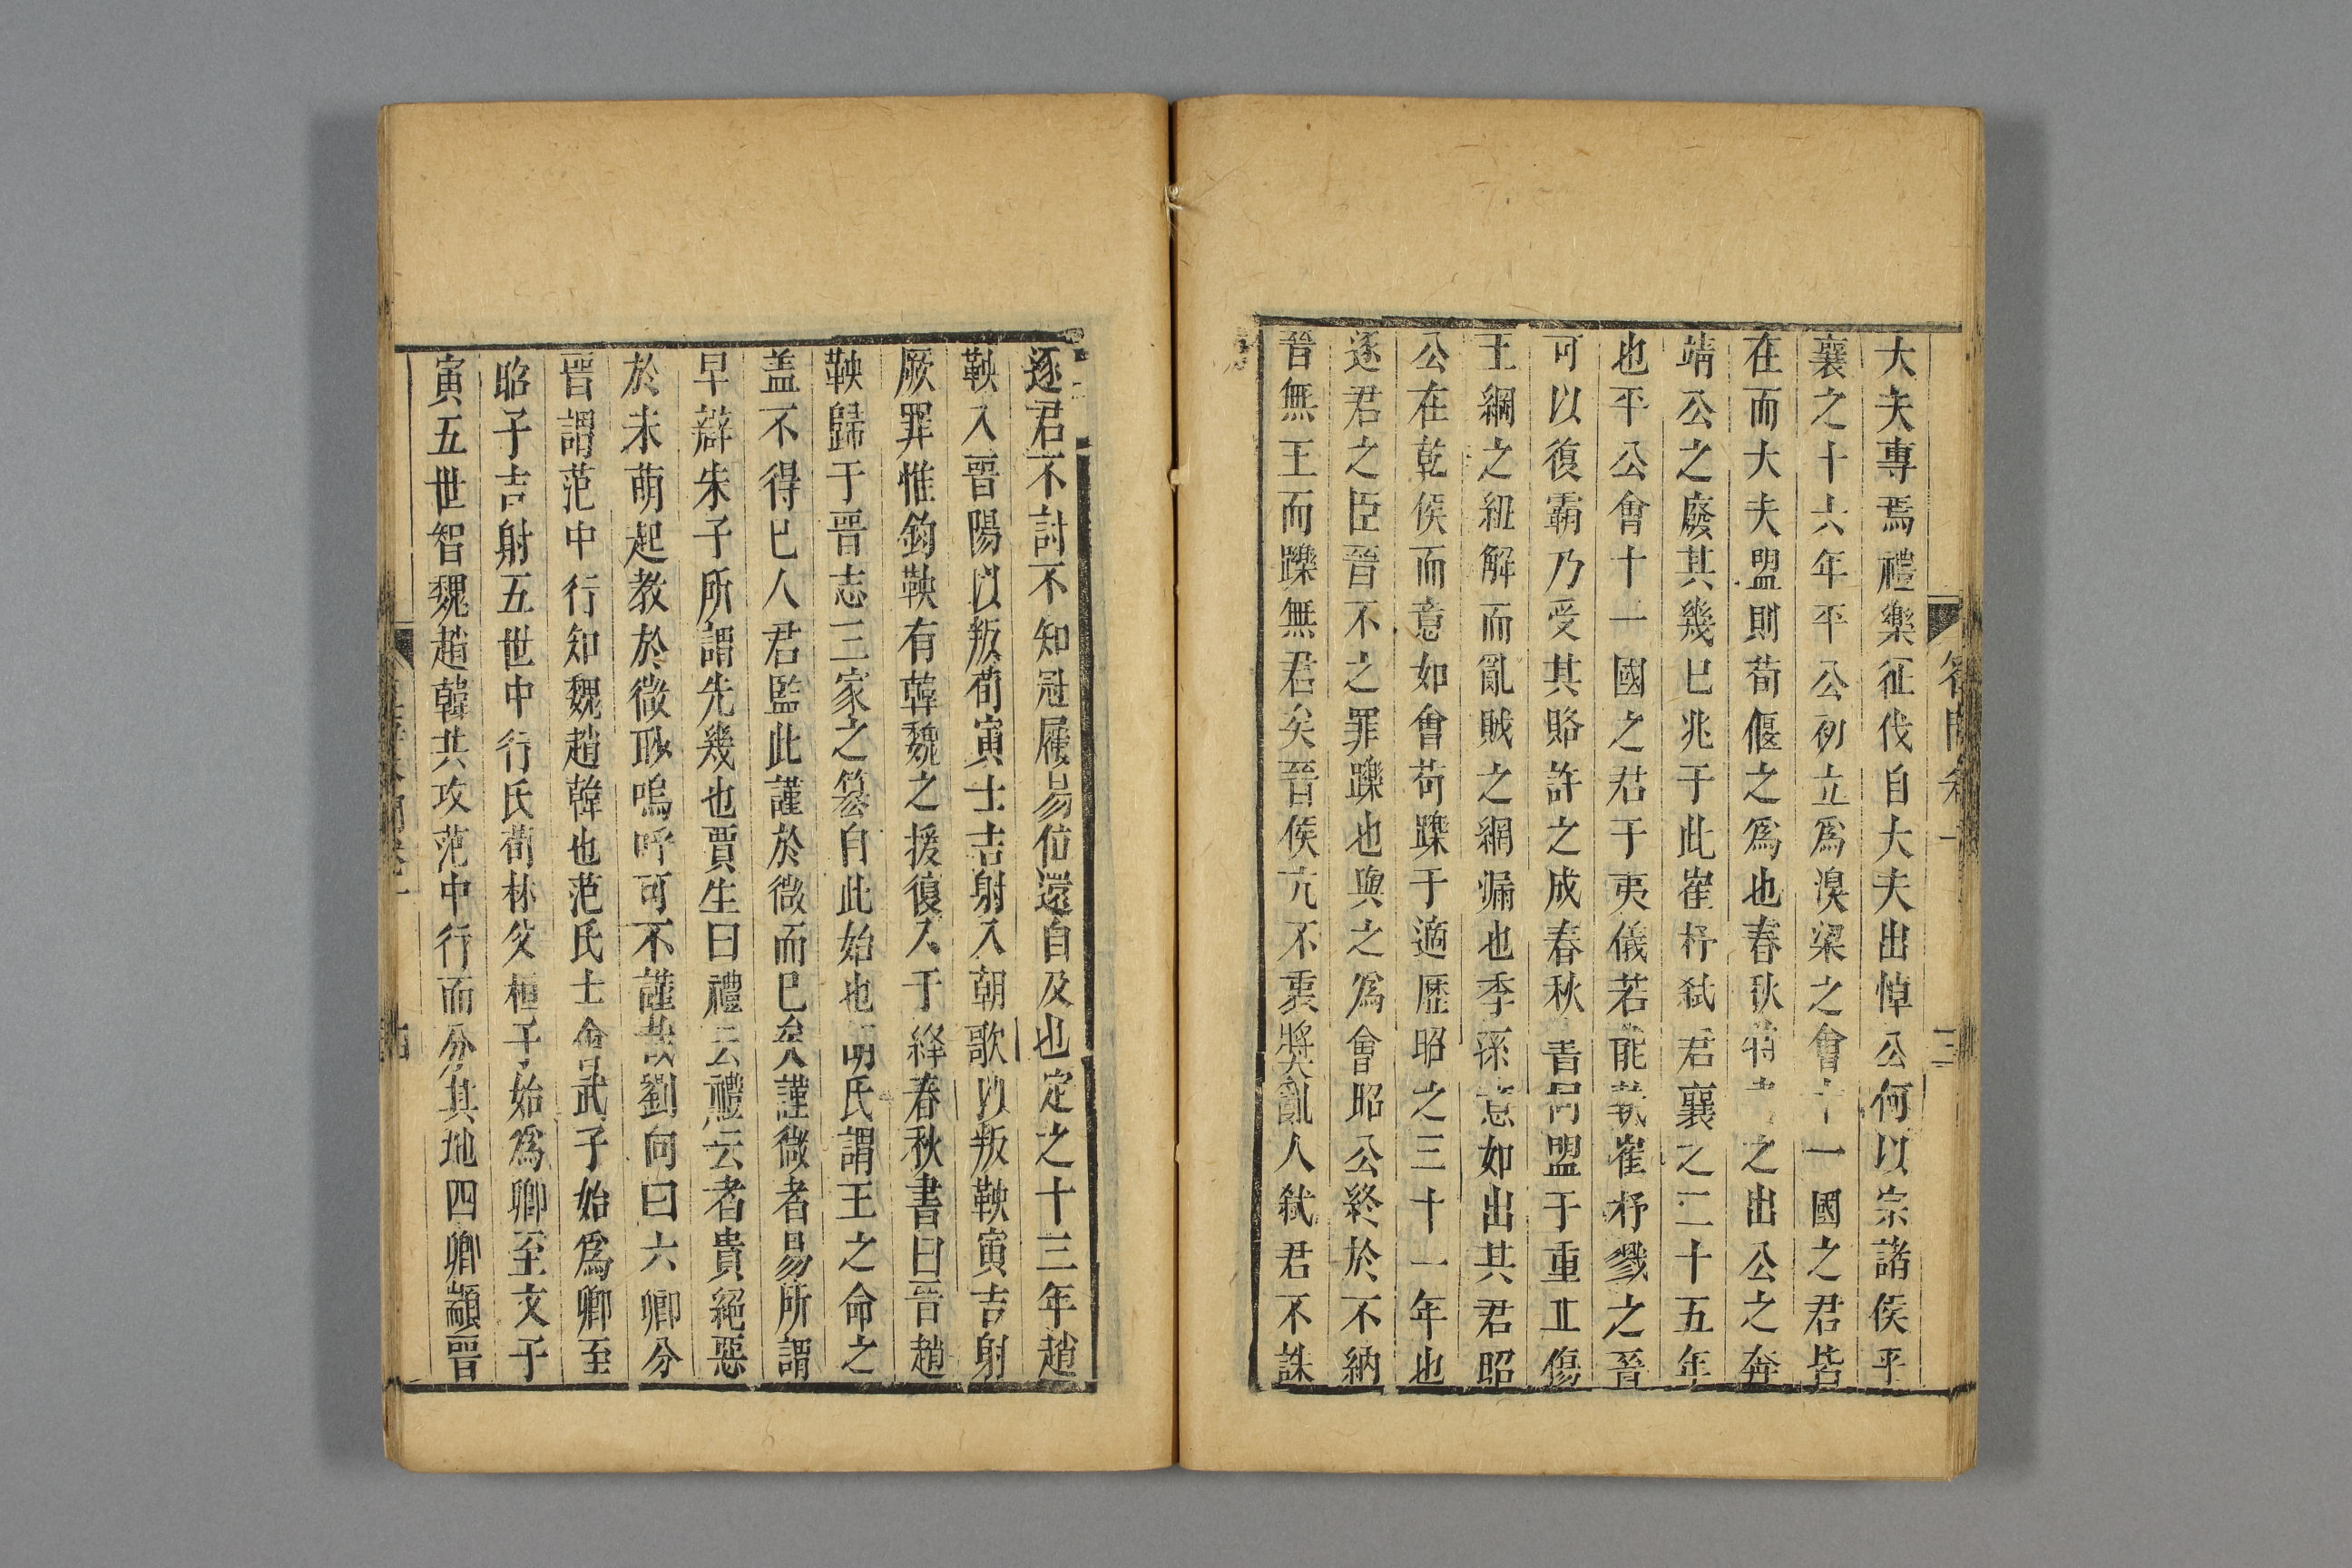 大夫專焉禮樂征伐自大夫出悼公何以宗諸侯平
襄之十六年平公初立爲湨梁之會十一國之君皆
在而大夫盟則荀偃之爲也春秋之出公之奔
靖公之廢其幾已兆于此崔杼弑君襄之二十五年
也平公會十一國之君于夷儀若能執崔杼戮之晉
可以復霸乃受其賂許之成春秋書同盟于重丘傷
王綱之紐解而亂賊之網漏也季孫意如出其君昭
公在乾侯而意如會荀躒于適歷昭之三十一年也
逐君之臣晉不之罪躒也與之爲會昭公終於不納
晉無王而躒無君矣晉侯亢不衷奬亂人弑君不誅
逐君不討不知冠履易位還自及也定之十三年趙
鞅入晉陽以叛荀寅士吉射入朝歌以叛鞅寅吉射
厥罪惟鈞鞅有韓魏之援復入于絳春秋書曰晉趙
鞅歸于晉志三家之簒自此始也胡氏謂王之命之
盖不得已人君監此謹於微而已矣謹微者易所謂
早辯朱子所謂先幾也賈生曰禮云禮云者貴絕惡
於未萌起教於微眇嗚呼可不謹哉劉向曰六卿分
晉謂范中行知魏趙韓也范氏士會武子始爲卿至
昭子吉射五世中行氏荀林父桓子始爲卿至文子
寅五世智魏趙韓共攻范中行而分其地四卿顓晉